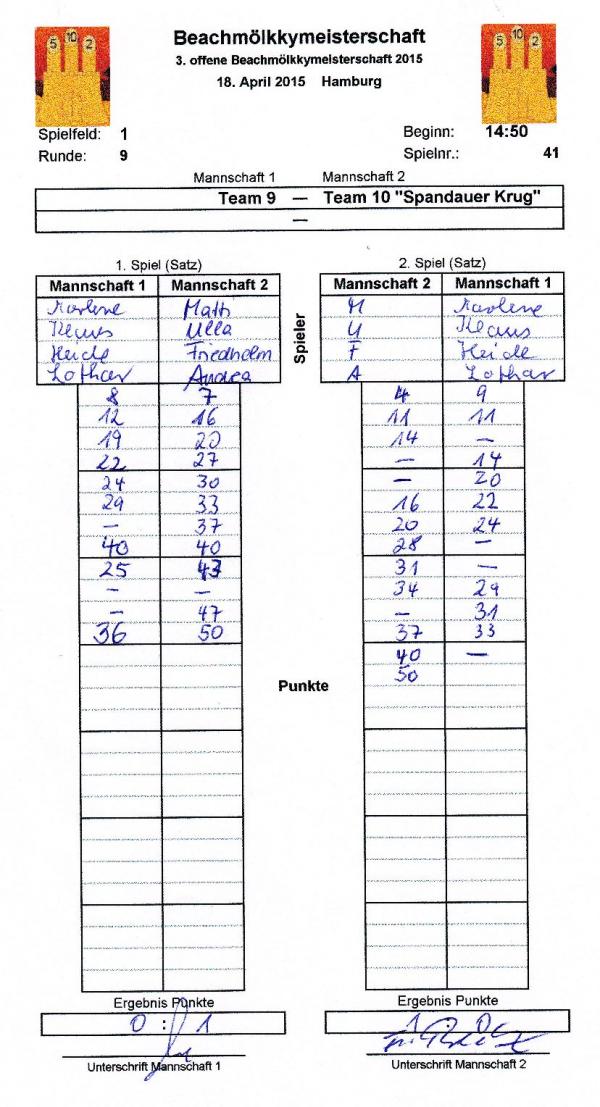 5 10 2
5 10 2
Beachmölkkymeisterschaft
3. offene Beachmölkkymeisterschaft 2015
18. April 2015 Hamburg
Spielfeld: 1 Beginn: 14:50
Runde: 9 Spielnr.: 41
Mannschaft 1 Mannschaft 2
Team 9 — Team 10 "Spandauer Krug"
—
1. Spiel (Satz)
Mannschaft 1 Mannschaft 2
Marlene Math
Klaus Ulla
Heide Friedholm
Lothar Andrea
8 7
12 16
19 20
22 27
24 30
29 33
– 37
40 40
25 43
– –
– 47
36 50
Ergebnis Punkte
0 : 1
Unterschrift Mannschaft 1
Spieler
Punkte
2. Spiel (Satz)
Mannschaft 2 Mannschaft 1
M Marlene
U Klaus
F Heide
A Lothar
4 9
11 11
14 –
– 14
– 20
16 22
20 24
28 –
31 –
34 29
– 31
37 33
40 –
50
Ergebnis Punkte
1 : 0
Unterschrift Mannschaft 2